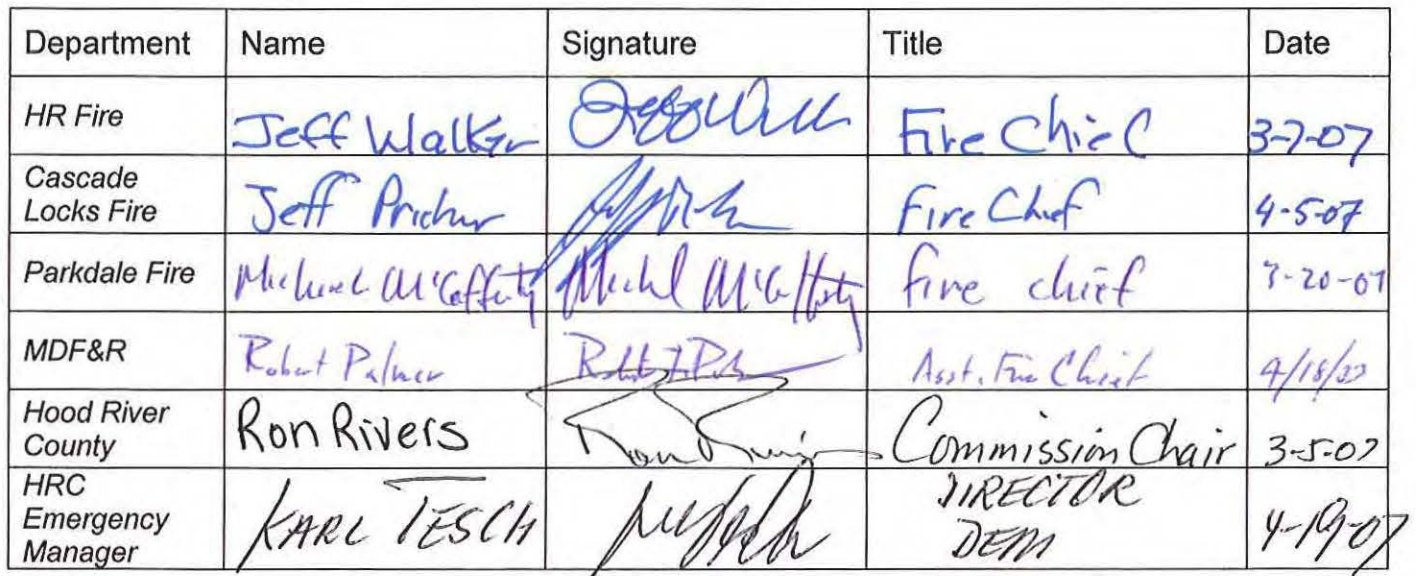 Department Name Signature Title Date
HR Fire Jeff Walker Fire Chief 3-7-07
Cascade
Locks Fire Jeff Pricher Fire Chief 4-5-07
Parkdale Fire Michael McCafferty fire chief 3-20-07
MDF&R Robert Palmer Asst. Fire Chief 4/18/07
Hood River
County Ron Rivers Commission Chair 3-5-07
HRC
Emergency
Manager KARL TESCH DIRECTOR
DEM 4-19-07